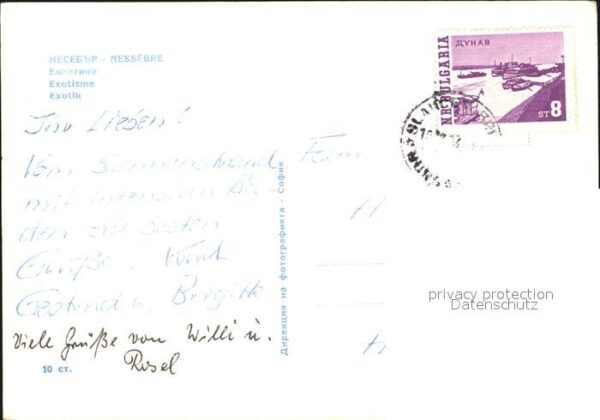 НЕСЕБЪР - NESSÈBRE
Екзотика
Exotisme
Exotik
Ihr Lieben!
Vom Sonnenstrand
mit intensiven Ba-
den die besten
Grüße
u. Brigitte
Viele Grüße von Willi u.
Rosel
10 ст.
Дирекция на фотографията - София
Fam
ДУНАВ
N.R. BULGARIA
ST 8
privacy protection
Datenschutz